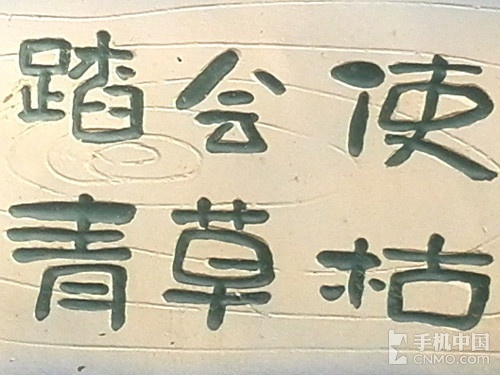 踏会使
青草枯
手机中国
CNMO.COM